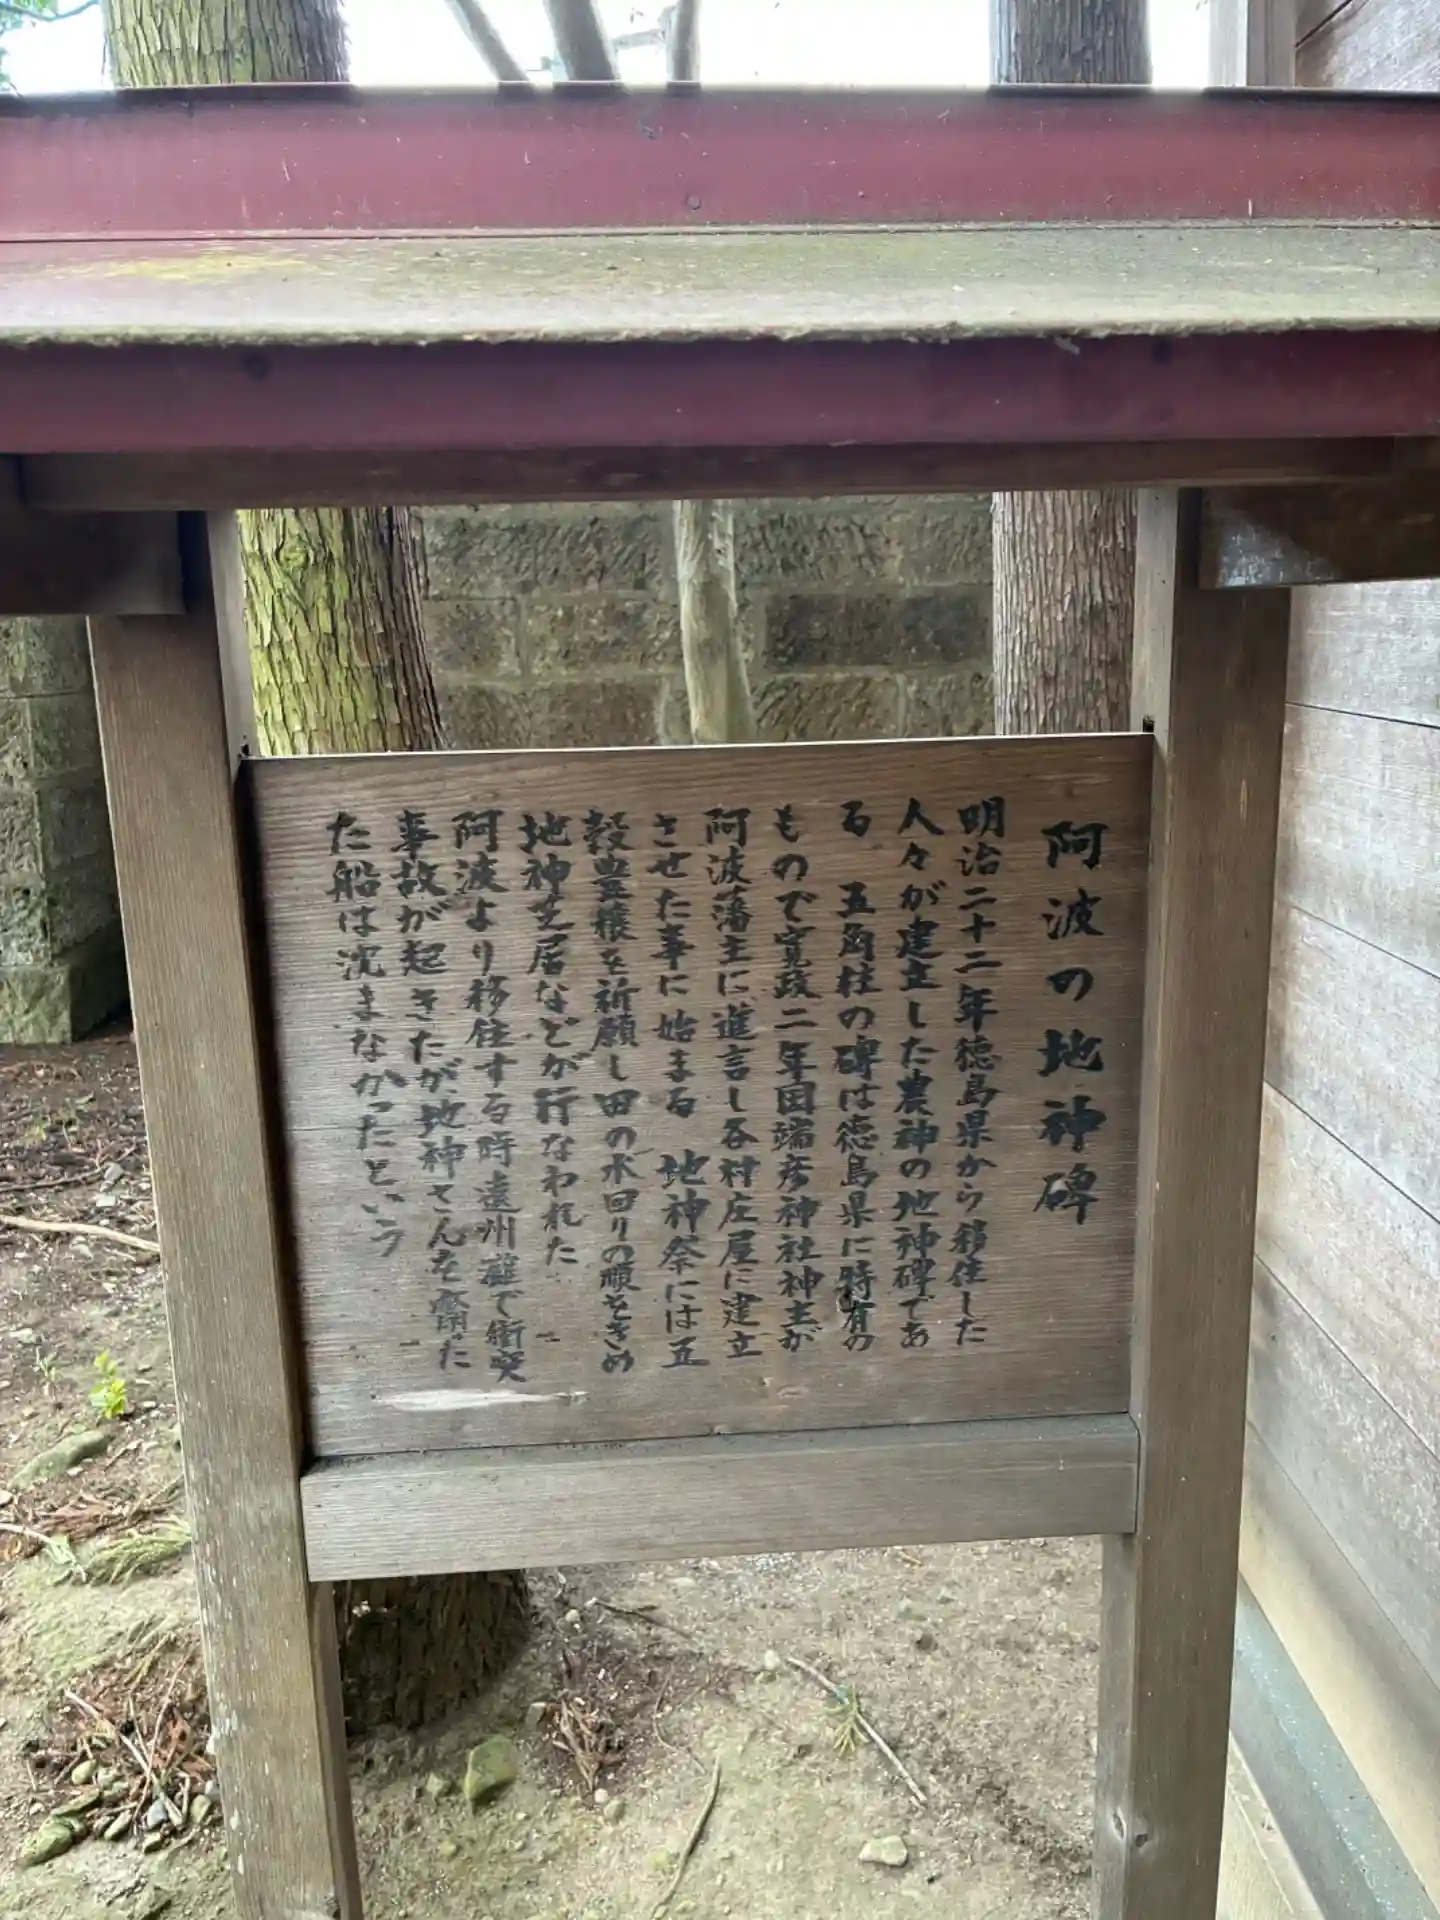 阿波の地神碑
明治二十二年徳島県から移住した
人々が建立した農神の地神碑であ
る　五角柱の碑は徳島県に特有の
もので寛政二年国端彦神社神主が
阿波藩主に進言し各村庄屋に建立
させた事に始まる　地神祭には五
穀豊穣を祈願し田の水回りの順をきめ
地神芝居などが行なわれた
阿波より移住する時遠州灘で衝突
事故が起きたが地神さんを齋た
た船は沈まなかったという